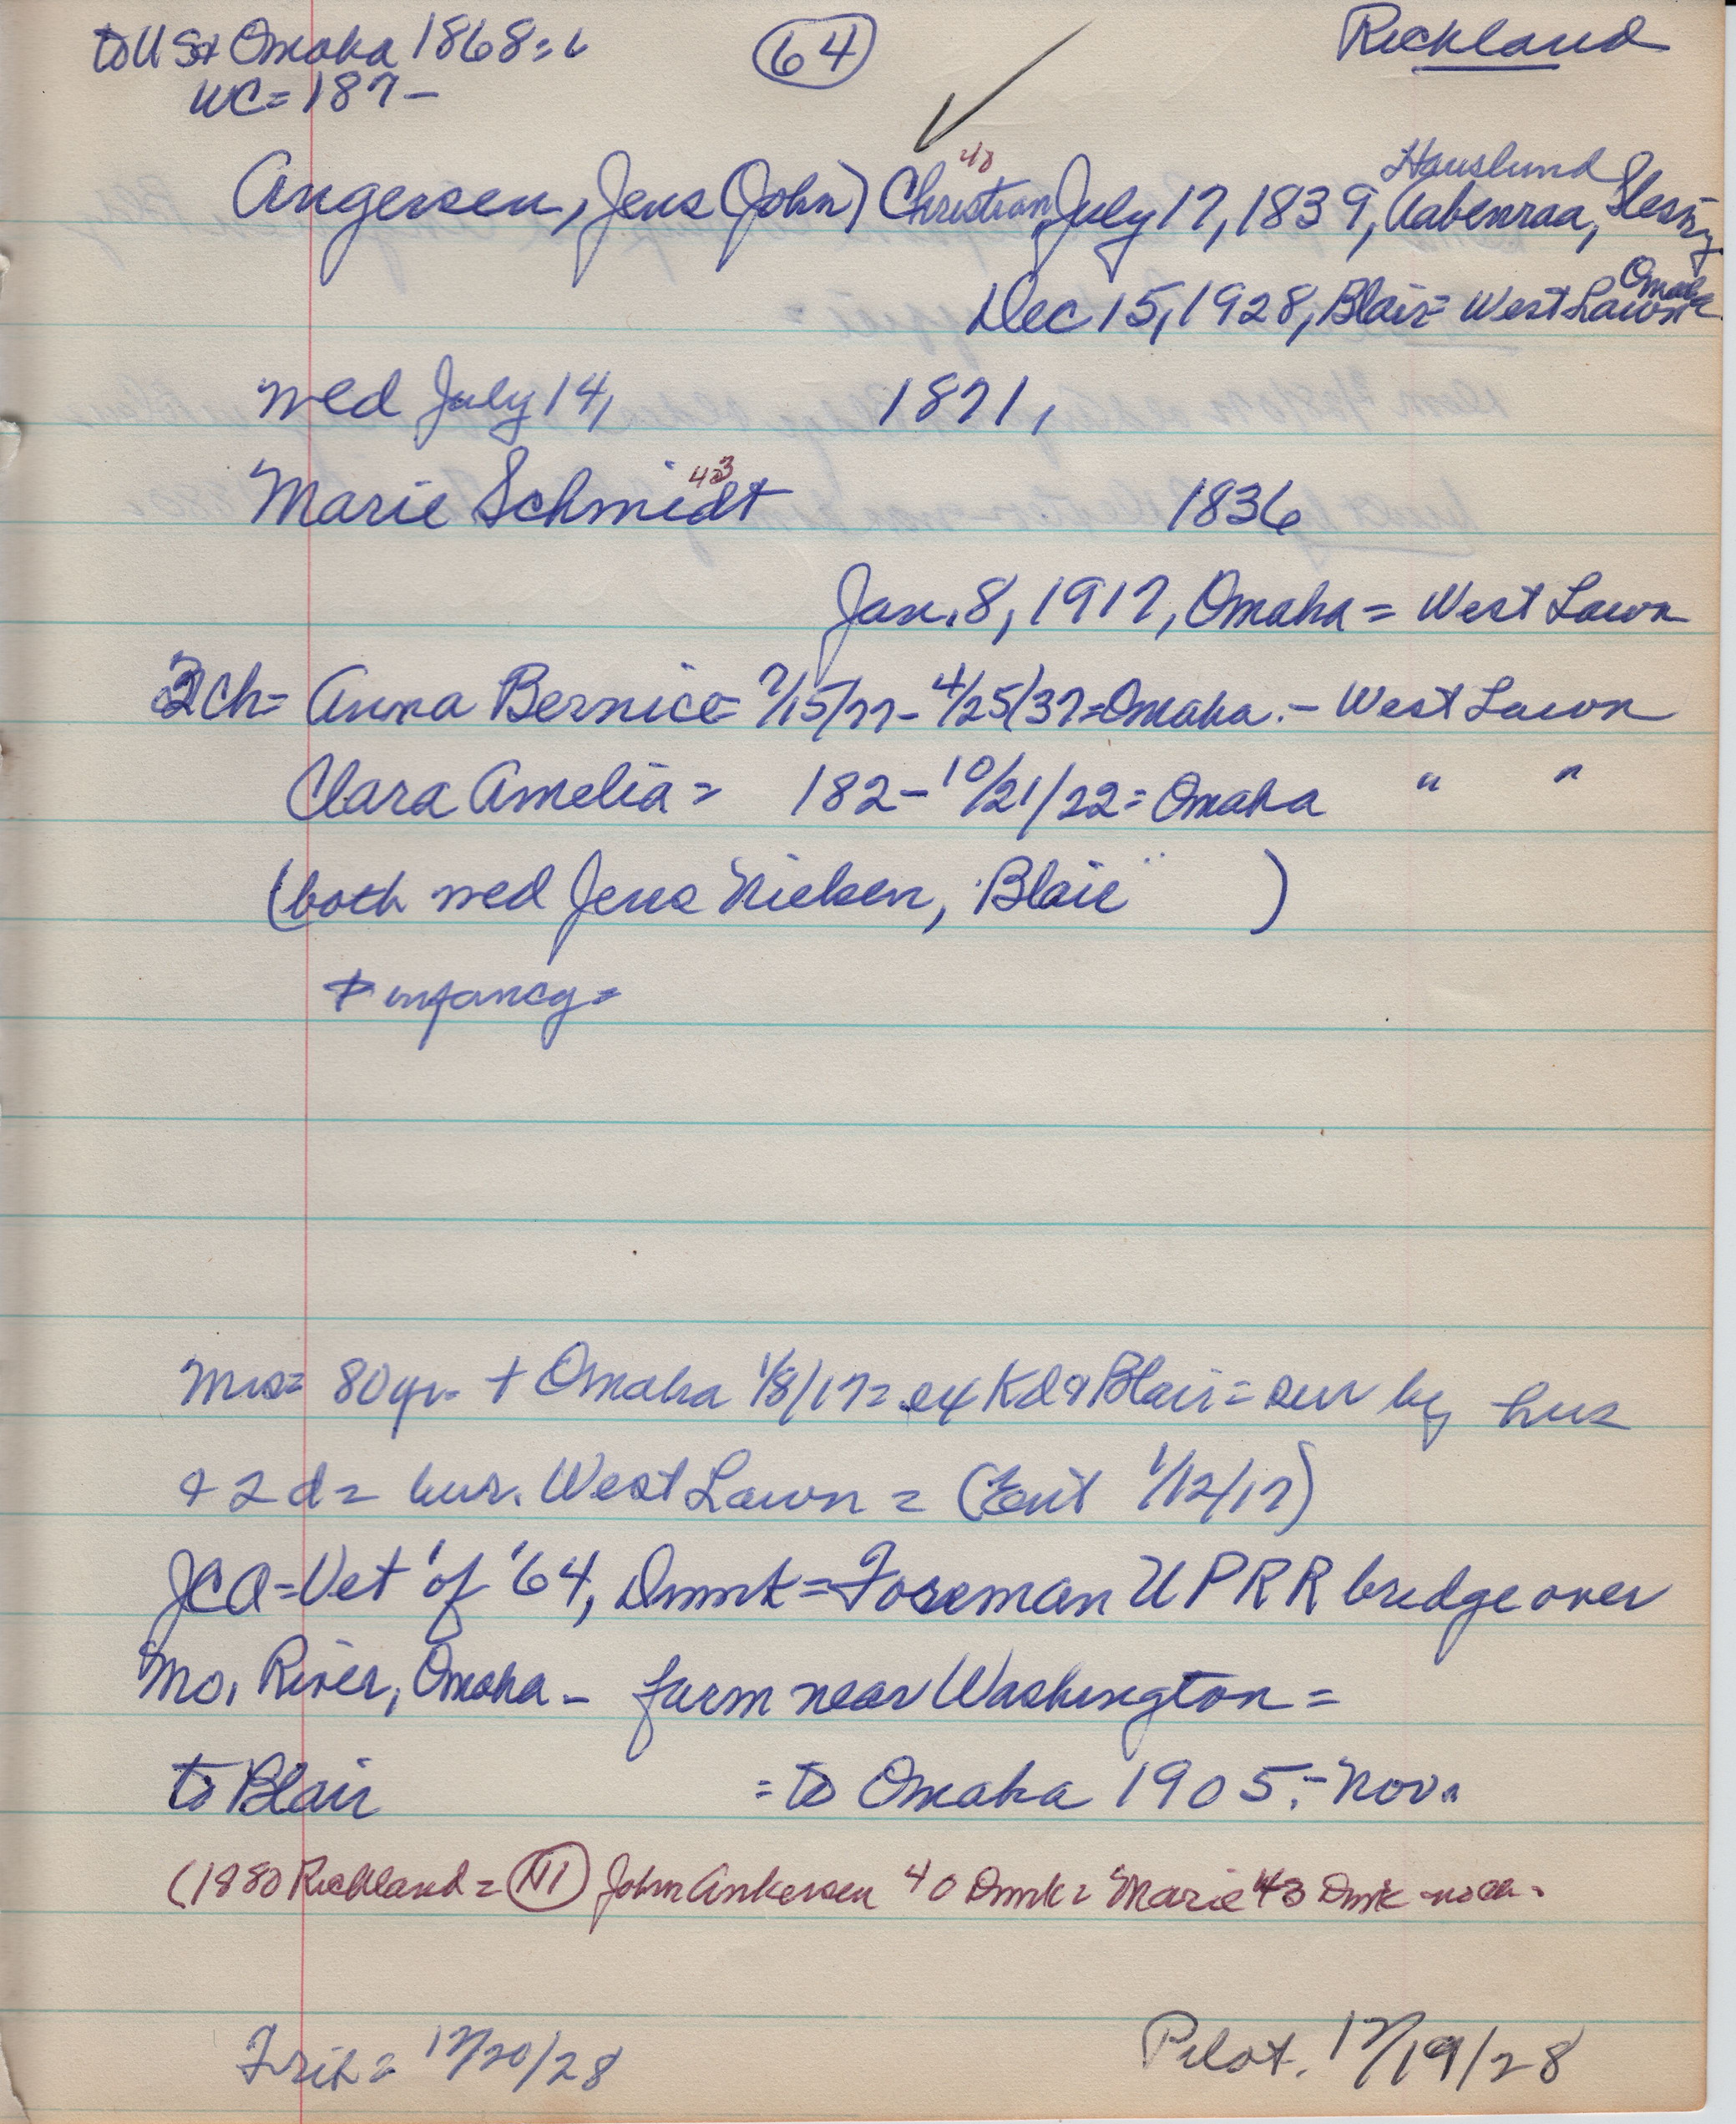 to US & Omaha 1868 =
WC = 187-
64
Richland
Angersen, Jens (John) Christian July 17, 1839, Aabenraa, Slesvig
40
Hauslund
Dec 15, 1928, Blair = West Lawn
Omaha
wed July 14, 1871,
Marie Schmidt 1836
43
Jan. 8, 1917, Omaha = West Lawn
3 ch = Anna Bernice = 7/15/77 - 4/25/37 = Omaha. - West Lawn
Clara Amelia = 182 - 10/21/22 = Omaha " "
(both wed Jens Nielsen, Blair )
+ infancy =
Mrs = 80 yr. + Omaha 1/8/17 = ex Kd & Blair = sur by hus
& 2 d = bur. West Lawn = (Ent 1/12/17)
JCA = Vet of '64, Dnmk = Foreman U P R R bridge over
Mo. River, Omaha - farm near Washington =
to Blair = to Omaha 1905. - Nov.
(1880 Richland = John Ankersen 40 Dnmk = Marie 43 Dmk - no ch -
Trib = 12/20/28
Pilot. 12/19/28